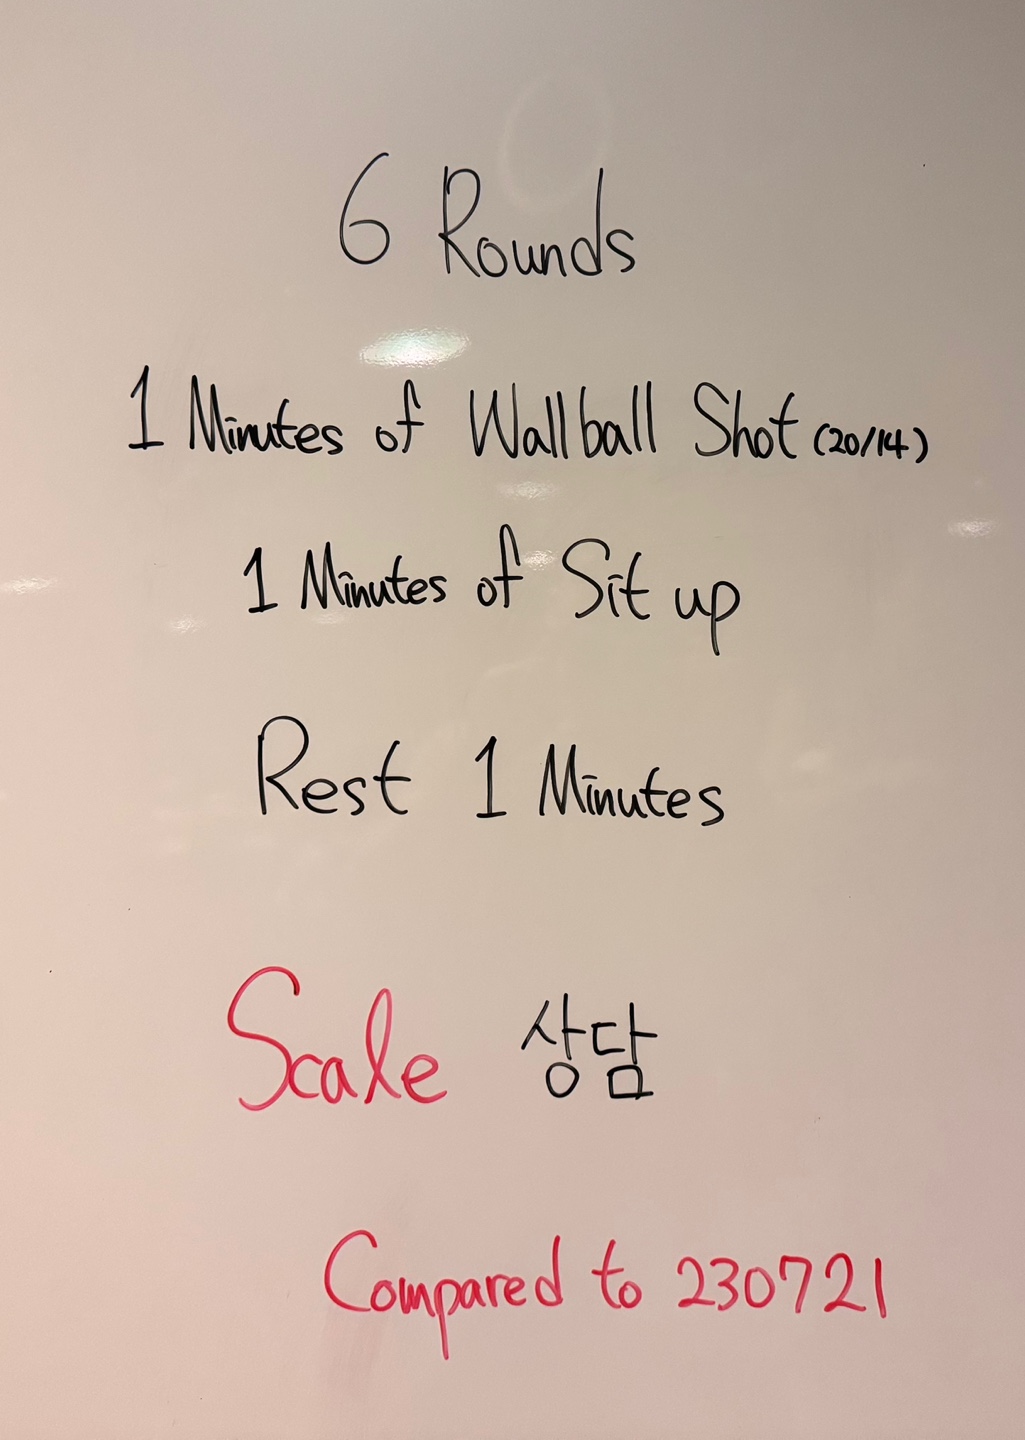 6 Rounds
1 Minutes of Wallball Shot (20/14)
1 Minutes of Sit up
Rest 1 Minutes
Scale 상담
Compared to 230721